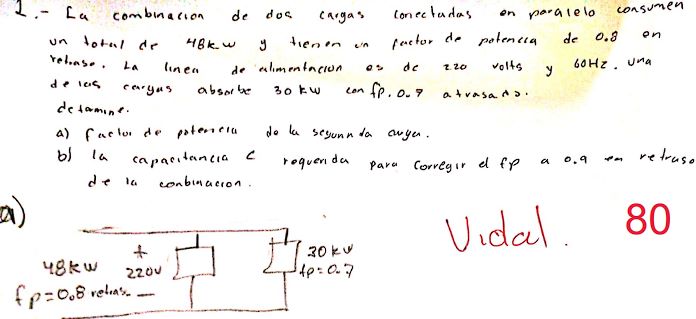 1.- La combinacion de dos cargas conectadas en paralelo consumen
un total de 48kw y tienen un factor de potencia de 0.8 en
retraso. La linea de alimentacion es de 220 volts y 60Hz. una
de las cargas absorbe 30 kw con fp. 0.7 atrasado.
determine.
a) factor de potencia de la segunda carga.
b) la capacitancia C requerida para corregir el fp a 0.9 en retraso
de la conbinacion.
a)
Vidal. 80
48kw + 220v - 30 kw
fp=0.8 retras. fp=0.7